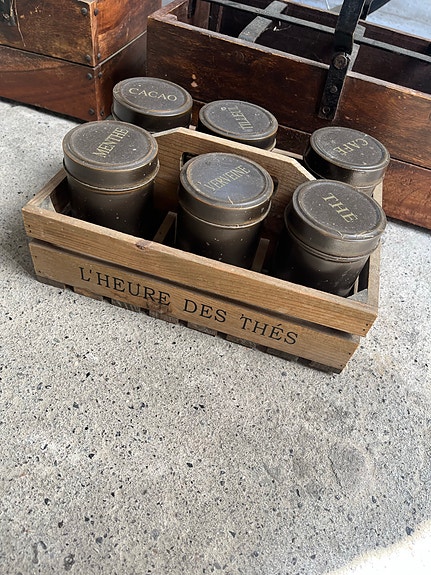 CACAO
TILLEUL
CAFÉ
MENTHE
VERVEINE
THÉ
L'HEURE DES THÉS